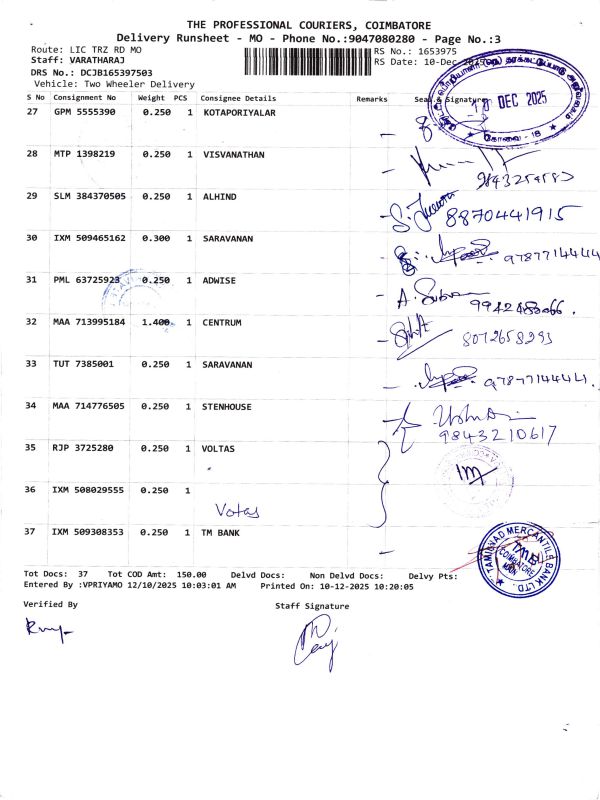 THE PROFESSIONAL COURIERS, COIMBATORE
Delivery Runsheet - MO - Phone No.:9047080280 - Page No.:3
Route: LIC TRZ RD MO
RS No.: 1653975
Staff: VARATHARAJ
RS Date: 10-Dec-2025
DRS No.: DCJB165397503
Vehicle: Two Wheeler Delivery
DEC 2025
S No Consignment No Weight PCS Consignee Details Remarks Seal & Signature
27 GPM 5555390 0.250 1 KOTAPORIYALAR
28 MTP 1398219 0.250 1 VISVANATHAN
29 SLM 384370505 0.250 1 ALHIND 8870441915
30 IXM 509465162 0.300 1 SARAVANAN 9787714444
31 PML 63725923 0.250 1 ADWISE
32 MAA 713995184 1.400 1 CENTRUM 8072658293
33 TUT 7385001 0.250 1 SARAVANAN
34 MAA 714776505 0.250 1 STENHOUSE
9843210617
35 RJP 3725280 0.250 1 VOLTAS
36 IXM 508029555 0.250 1
Votas
37 IXM 509308353 0.250 1 TM BANK
TAMILNAD MERCANTILE BANK LTD.
TMB
COIMBATORE
MAIN
Tot Docs: 37 Tot COD Amt: 150.00 Delvd Docs: Non Delvd Docs: Delvy Pts:
Entered By :VPRIYAMO 12/10/2025 10:03:01 AM Printed On: 10-12-2025 10:20:05
Verified By Staff Signature